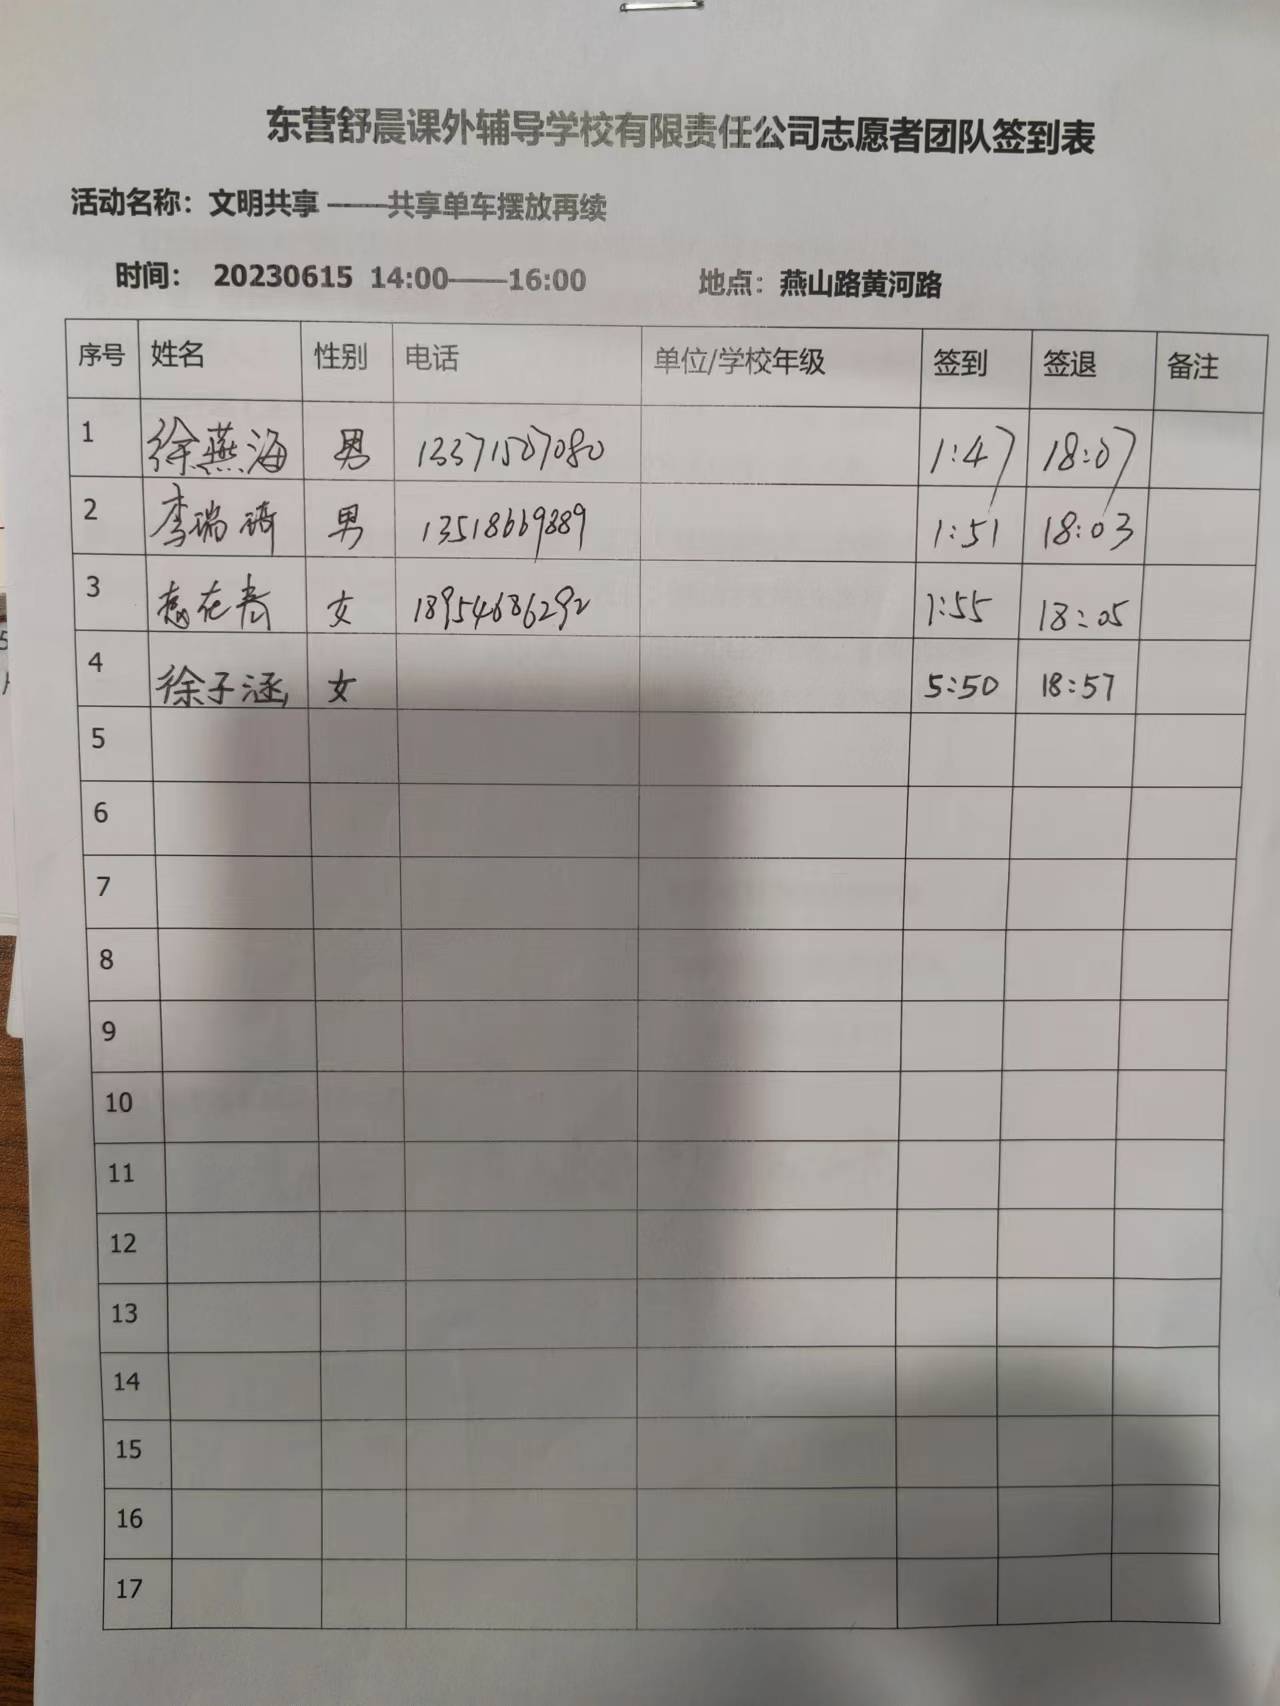 东营舒晨课外辅导学校有限责任公司志愿者团队签到表
活动名称：文明共享 ——共享单车摆放再续
时间： 20230615 14:00——16:00 地点：燕山路黄河路
序号 姓名 性别 电话 单位/学校年级 签到 签退 备注
1 徐燕海 男 13371507080 1:47 18:07
2 李瑞琦 男 13518669889 1:51 18:03
3 女 18954686292 1:55 18:05
4 徐子涵 女 5:50 18:57
5
6
7
8
9
10
11
12
13
14
15
16
17